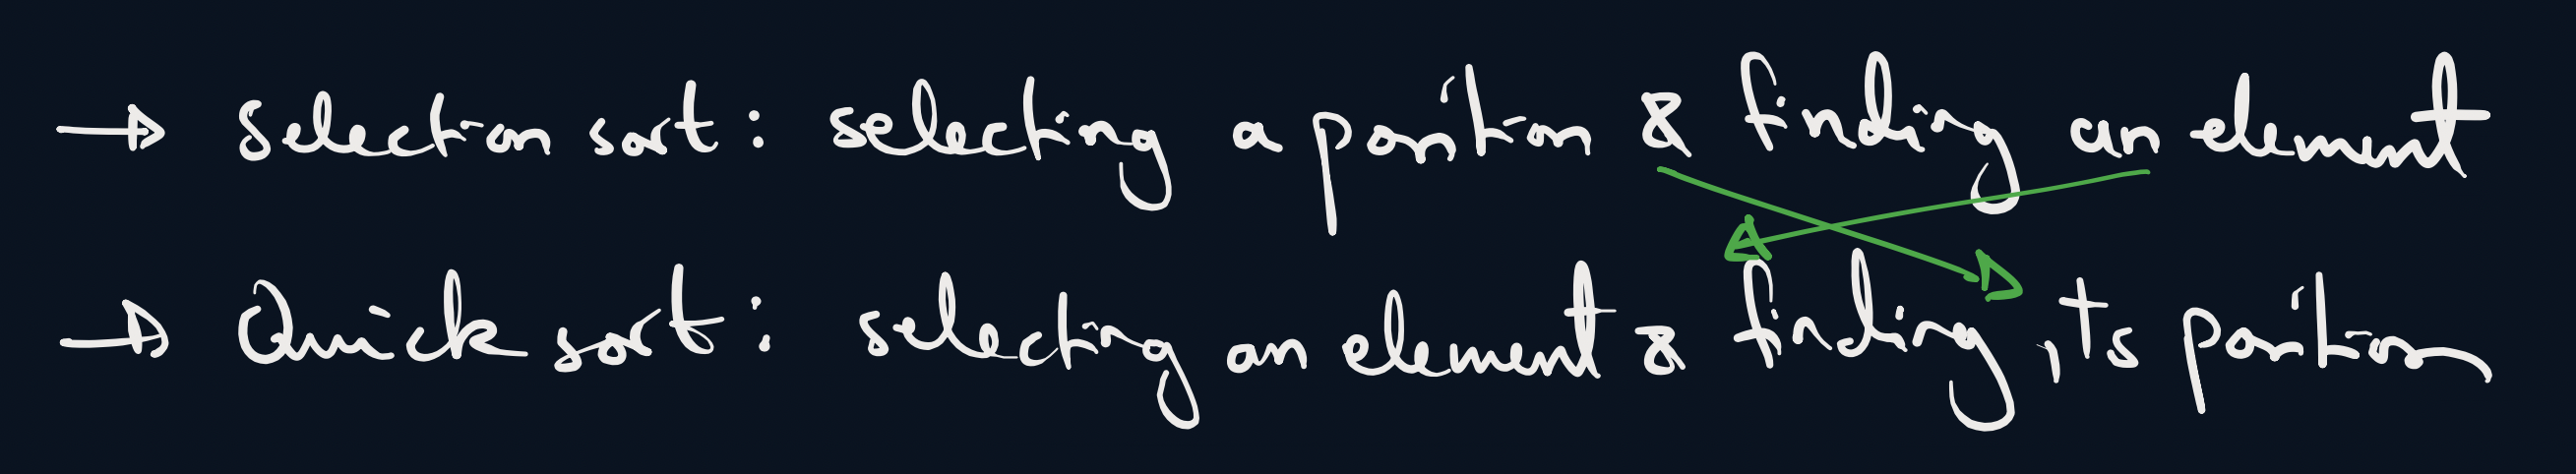 → Selection sort: selecting a position & finding an element
→ Quick sort: selecting an element & finding its position